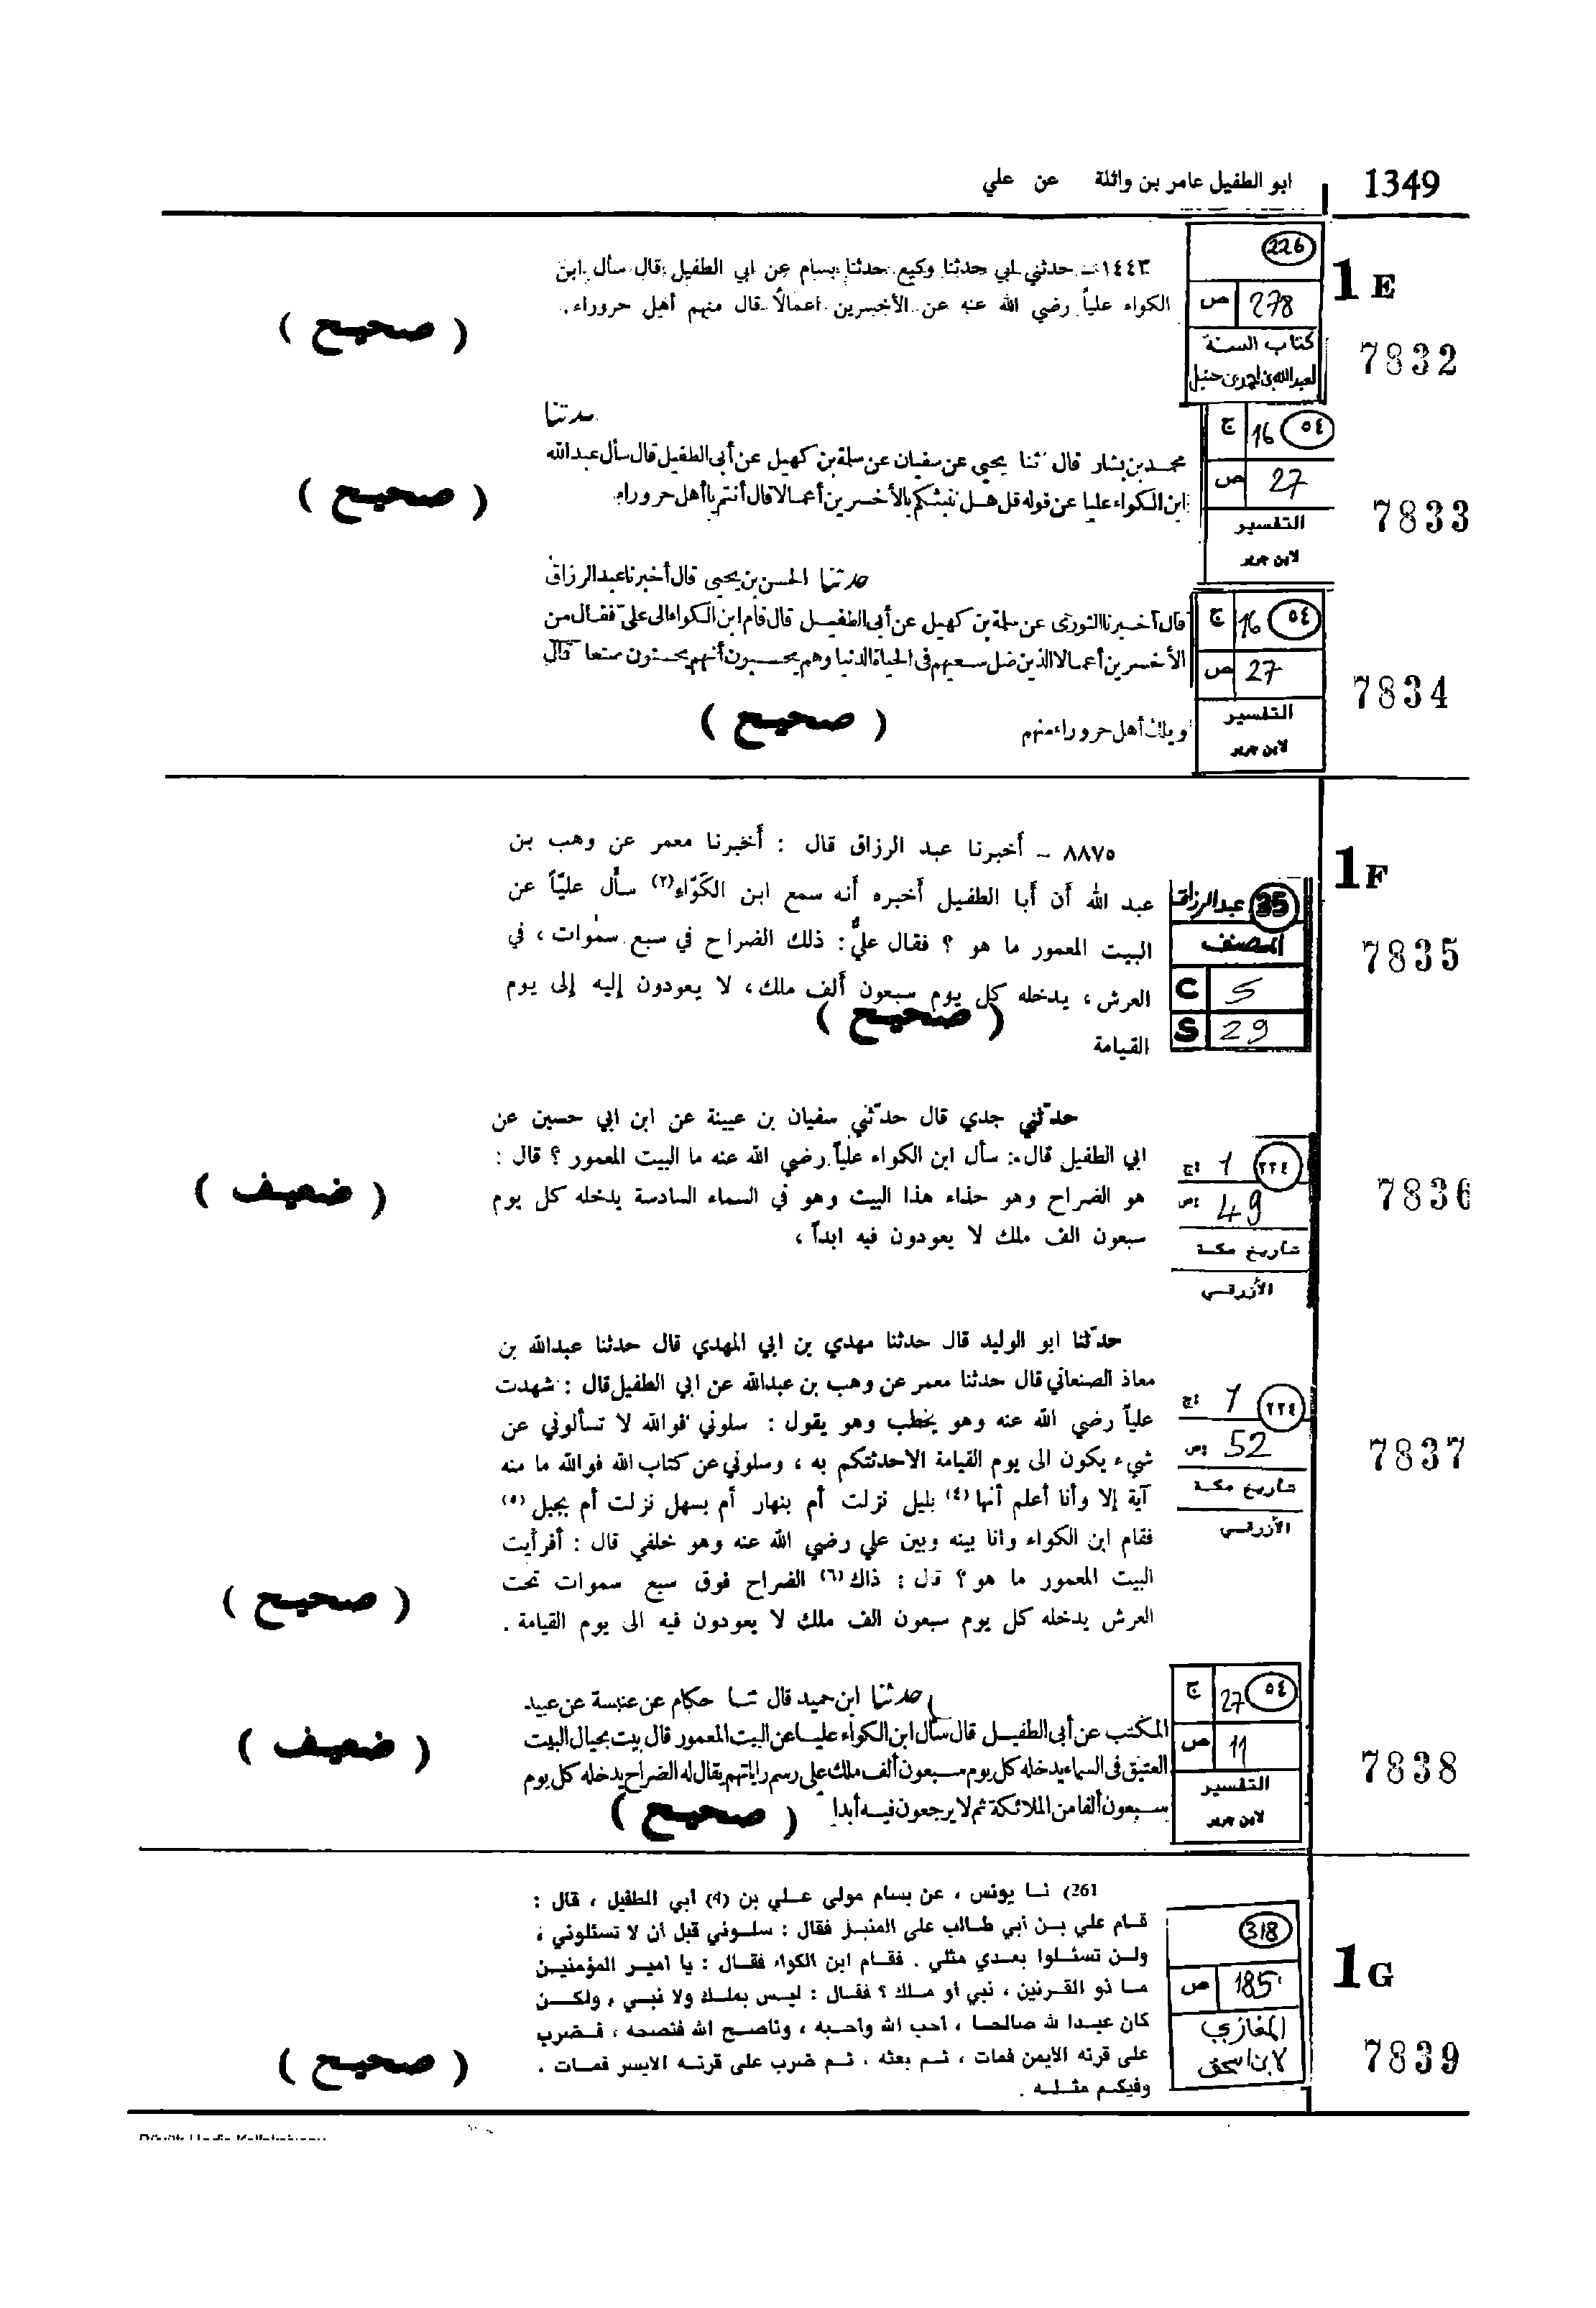 1349
ابو الطفيل عامر بن واثلة عن علي
1 E
226
ص 278
كتاب السنة
لعبدالله بن احمد بن حنبل
7832
١٤٤٣ - حدثني ابي حدثنا وكيع حدثنا بسام عن ابي الطفيل قال سأل ابن
الكواء علياً رضي الله عنه عن الأخسرين اعمالاً قال منهم أهل حروراء .
( صحيح )
ج 16 ٥٤
ص 27
التفسير
لابن جرير
7833
حدثنا
محمد بن بشار قال ثنا يحيى عن سفيان عن سلمة بن كهيل عن أبى الطفيل قال سأل عبد الله
ابن الكواء عليا عن قوله قل هل ننبئكم بالأخسرين أعمالا قال أنتم يا أهل حروراء
( صحيح )
ج 16 ٥٤
ص 27
التفسير
لابن جرير
7834
حدثنا الحسن بن يحيى قال أخبرنا عبد الرزاق
قال أخبرنا الثورى عن سلمة بن كهيل عن أبى الطفيل قال قام ابن الكواء الى علىّ فقال من
الأخسرين أعمالا الذين ضل سعيهم فى الحياة الدنيا وهم يحسبون أنهم يحسنون صنعا قال
ويلك أهل حروراء منهم
( صحيح )
1 F
35 عبد الرزاق
المصنف
C 5
S 29
7835
٨٨٧٥ - أخبرنا عبد الرزاق قال : أخبرنا معمر عن وهب بن
عبد الله أن أبا الطفيل أخبره أنه سمع ابن الكَوّاء(٢) سأل عليّاً عن
البيت المعمور ما هو ؟ فقال عليٌّ : ذلك الضراح في سبع سمٰوات ، في
العرش ، يدخله كل يوم سبعون ألف ملك ، لا يعودون إليه إلى يوم
القيامة
( صحيح )
ج: 1 ٢٢٤
ص: 49
تاريخ مكة
الأزرقي
7836
حدّثني جدي قال حدّثني سفيان بن عيينة عن ابن ابي حسين عن
ابي الطفيل قال : سأل ابن الكواء علياً رضي الله عنه ما البيت المعمور ؟ قال :
هو الضراح وهو حذاء هذا البيت وهو في السماء السادسة يدخله كل يوم
سبعون الف ملك لا يعودون فيه ابداً ،
( ضعيف )
ج: 1 ٢٢٤
ص: 52
تاريخ مكة
الأزرقي
7837
حدّثنا ابو الوليد قال حدثنا مهدي بن ابي المهدي قال حدثنا عبدالله بن
معاذ الصنعاني قال حدثنا معمر عن وهب بن عبدالله عن ابي الطفيل قال : شهدت
علياً رضي الله عنه وهو يخطب وهو يقول : سلوني فوالله لا تسألوني عن
شيء يكون الى يوم القيامة الاحدثتكم به ، وسلوني عن كتاب الله فوالله ما منه
آية إلا وأنا أعلم أنها (٤) بليل نزلت أم بنهار أم بسهل نزلت أم بجبل (٥)
فقام ابن الكواء وانا بينه وبين علي رضي الله عنه وهو خلفي قال : أفرأيت
البيت المعمور ما هو ؟ قال : ذاك (٦) الضراح فوق سبع سموات تحت
العرش يدخله كل يوم سبعون الف ملك لا يعودون فيه الى يوم القيامة .
( صحيح )
ج 27 ٥٤
ص 11
التفسير
لابن جرير
7838
حدثنا ابن حميد قال ثنا حكام عن عنبسة عن عبيد
المكتب عن أبى الطفيل قال سأل ابن الكواء عليا عن البيت المعمور قال بيت بحيال البيت
العتيق فى السماء يدخله كل يوم سبعون ألف ملك على رسم راياتهم يقال له الضراح يدخله كل يوم
سبعون ألفا من الملائكة ثم لا يرجعون فيه أبدا
( ضعيف )
( صحيح )
1 G
318
ص 185
المغازي
لابن اسحق
7839
261) نا يونس ، عن بسام مولى علي بن (4) أبي الطفيل ، قال :
قام علي بن أبي طالب على المنبر فقال : سلوني قبل أن لا تسئلوني ،
ولن تسئلوا بعدي مثلي . فقام ابن الكواء فقال : يا أمير المؤمنين
ما ذو القرنين ، نبي أو ملك ؟ فقال : ليس بملك ولا نبي ، ولكن
كان عبدا لله صالحا ، أحب الله وأحبه ، وناصح الله فنصحه ، فضرب
على قرنه الأيمن فمات ، ثم بعثه ، ثم ضرب على قرنه الايسر فمات .
وفيكم مثله .
( صحيح )